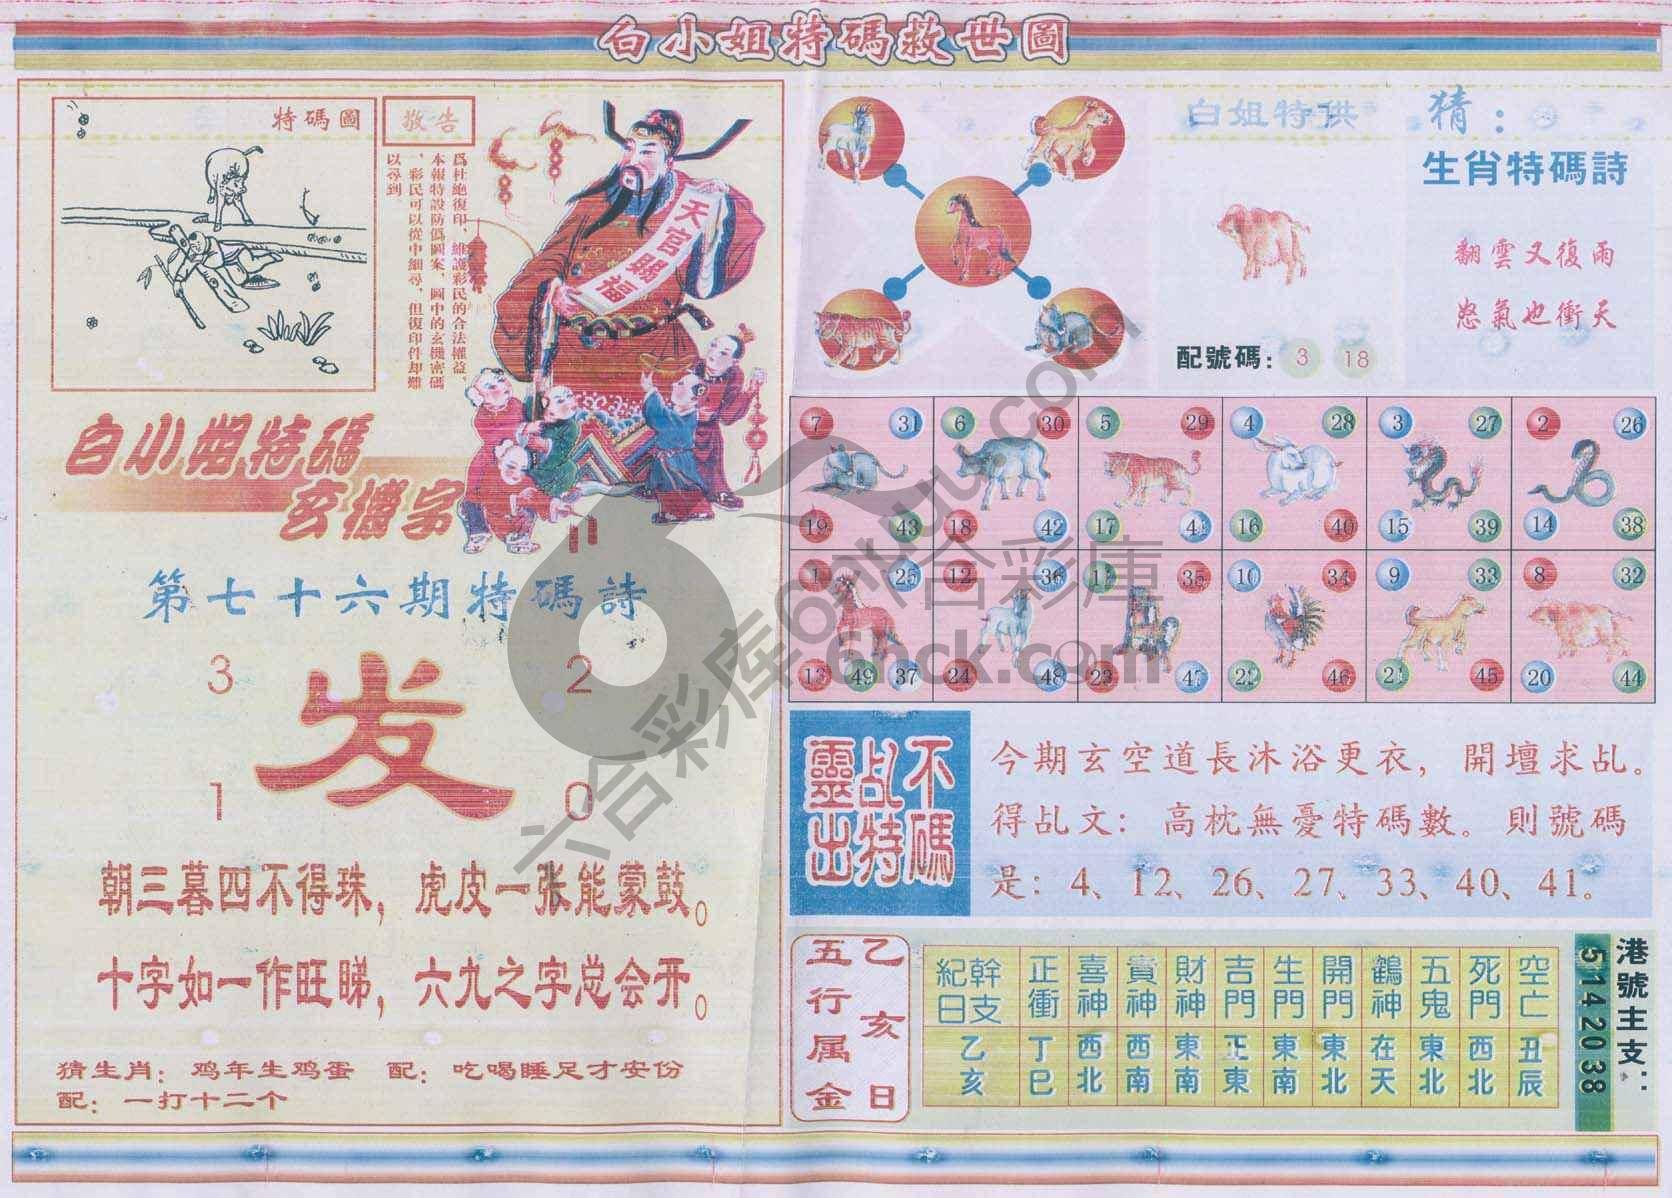 白小姐特碼救世圖
特碼圖
敬告
爲杜絶復印，維護彩民的合法權益，
本報特設防僞圖案，圖中的玄機密碼
，彩民可以從中細尋，但復印件却難
以尋到。
天官賜福
白小姐特碼
玄機字
第七十六期特碼詩
3 2
发
1 0
朝三暮四不得珠，虎皮一张能蒙鼓。
十字如一作旺睇，六九之字总会开。
猜生肖：鸡年生鸡蛋 配：吃喝睡足才安份
配：一打十二个
白姐特供
配號碼：3 18
猜：
生肖特碼詩
翻雲又復雨
怒氣也衝天
7 31 6 30 5 29 4 28 3 27 2 26
19 43 18 42 17 41 16 40 15 39 14 38
1 25 12 36 11 35 10 34 9 33 8 32
13 49 37 24 48 23 47 22 46 21 45 20 44
不碼
乩特
靈出
今期玄空道長沐浴更衣，開壇求乩。
得乩文：高枕無憂特碼數。則號碼
是：4、12、26、27、33、40、41。
乙亥日
五行属金
紀日幹支 正衝 喜神 貴神 財神 吉門 生門 開門 鶴神 五鬼 死門 空亡
乙亥 丁巳 西北 西南 東南 正東 東南 東北 在天 東北 西北 丑辰
港號主支：
514 20 38
六合彩库6hck.com
六合彩庫
6hck.com